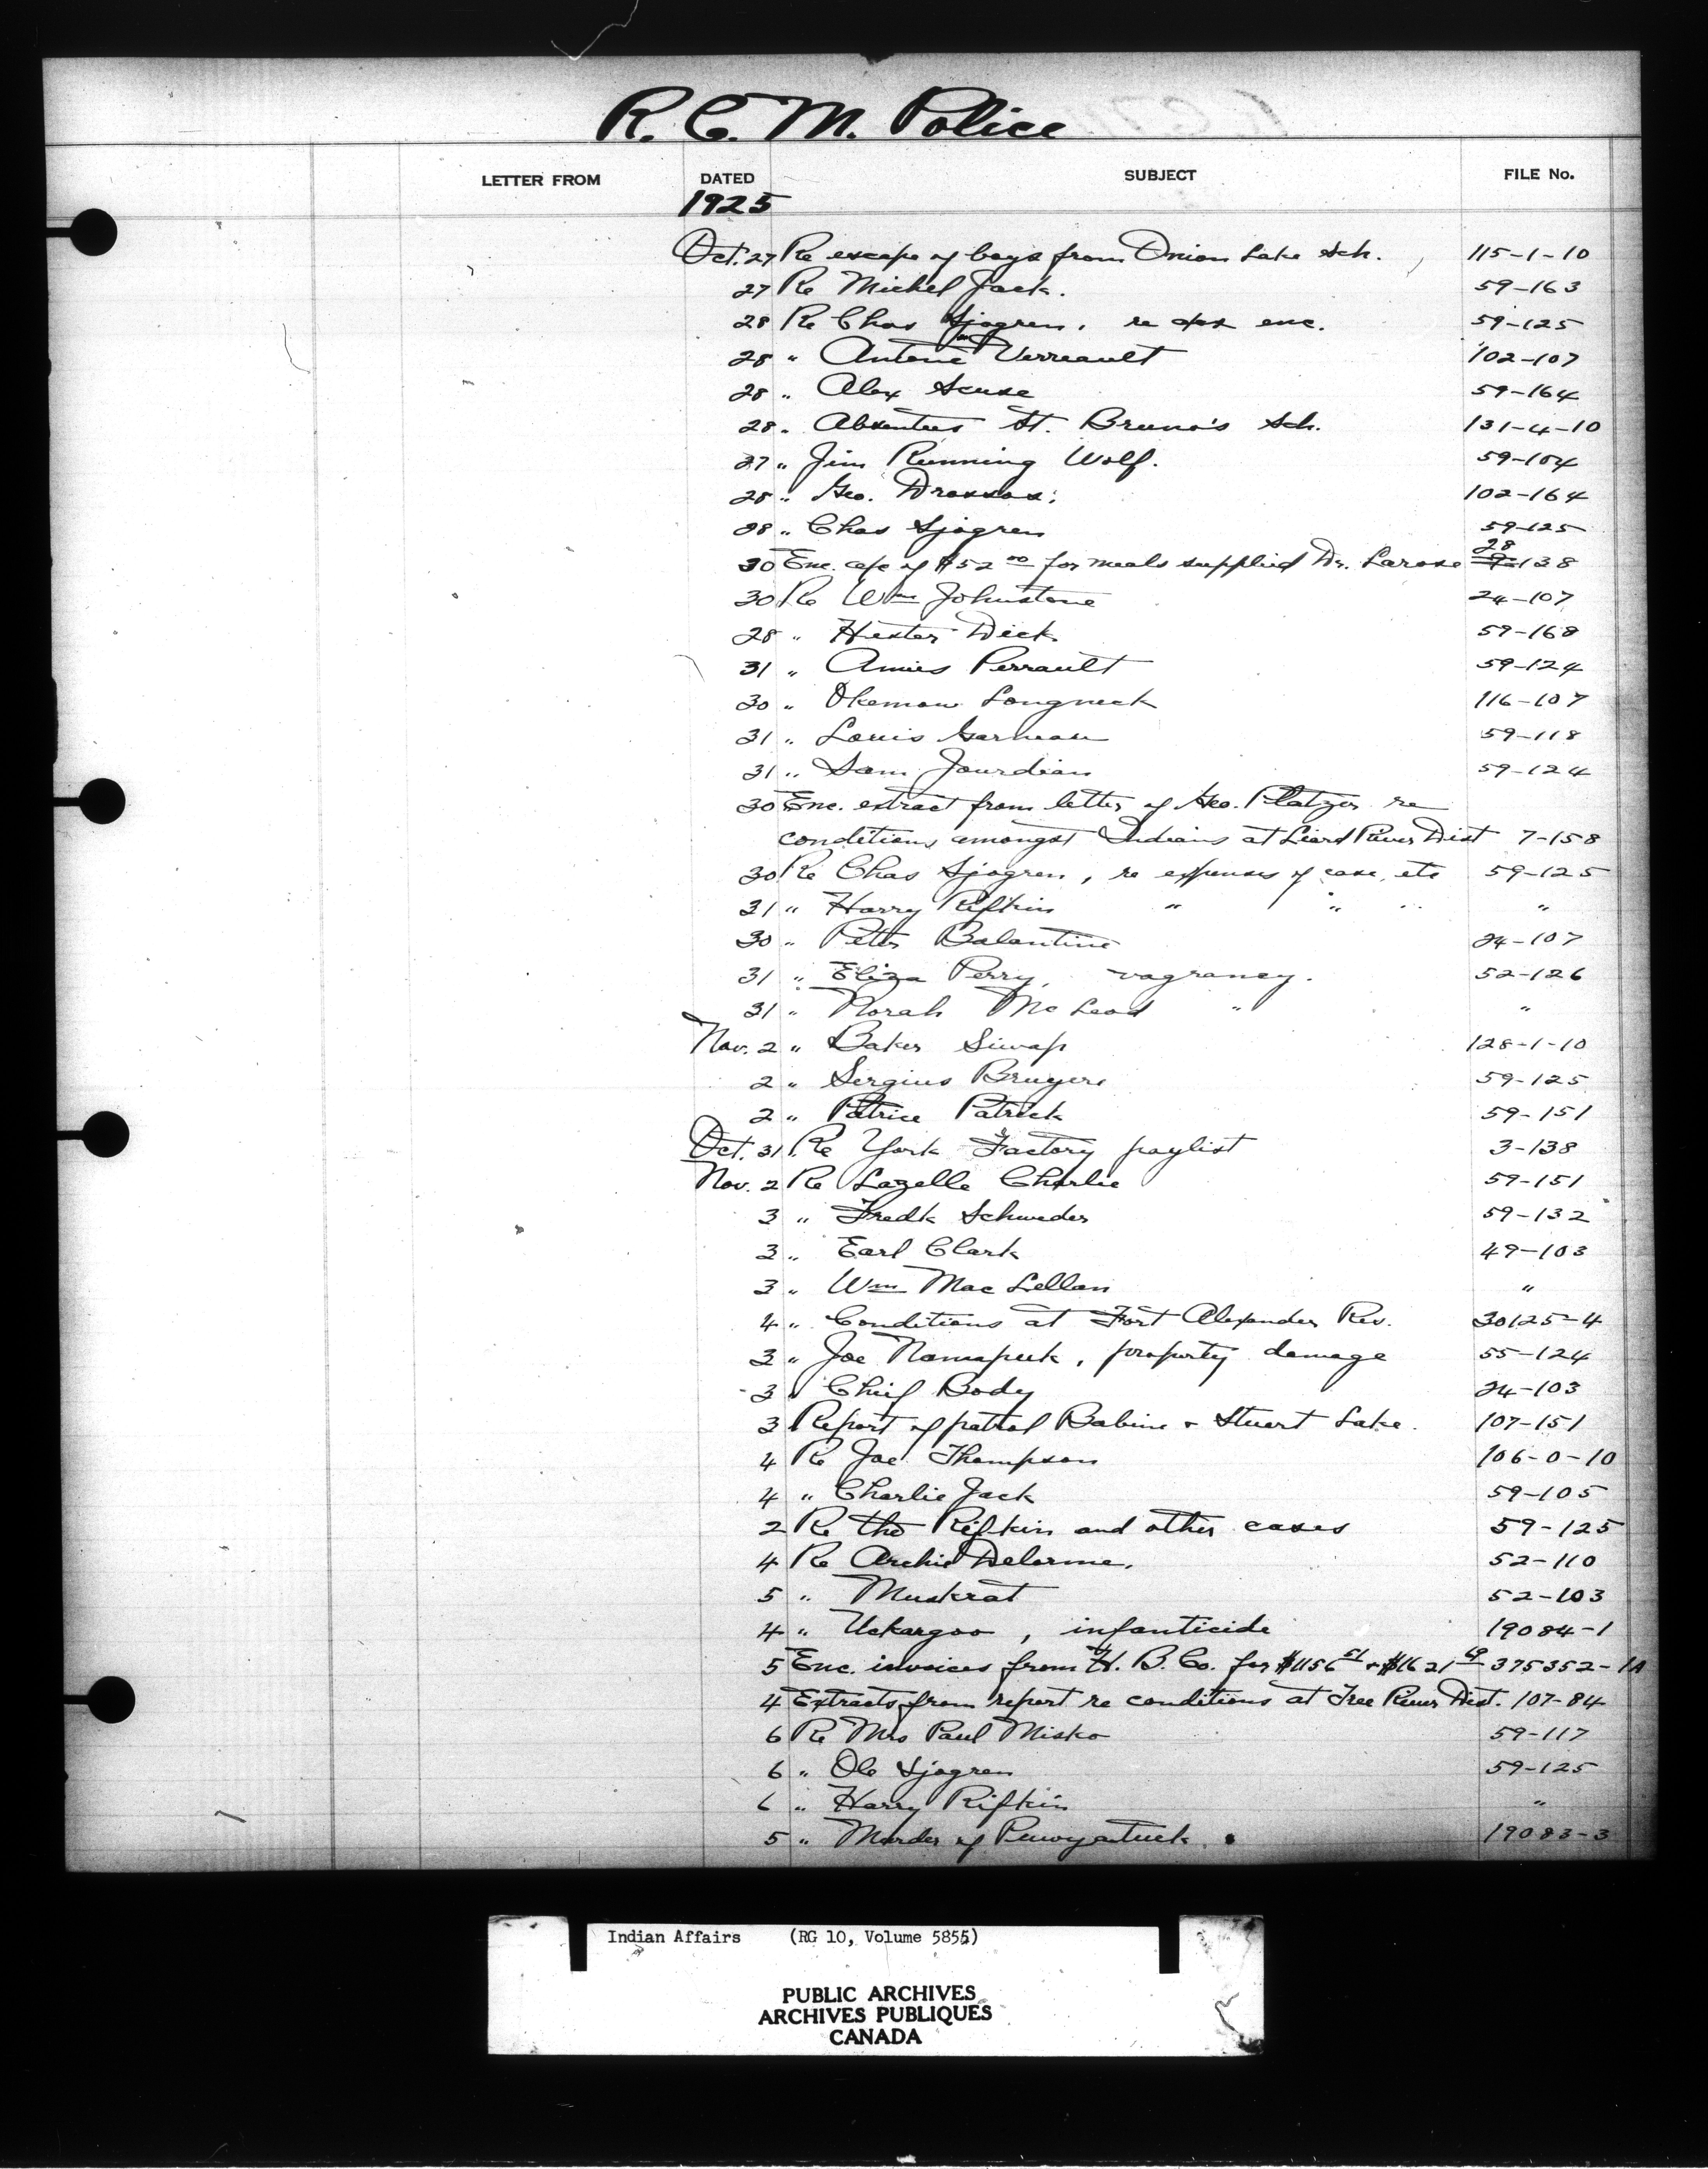 R. C. M. Police
LETTER FROM DATED SUBJECT FILE No.
1925
Oct. 27 Re escape of boys from Onion Lake Sch. 115-1-10
27 Re Michel Jack. 59-163
28 Re Chas Sjogren, re enc. 59-125
28 " Antoine Verreault 102-107
28 " Alex 59-164
28 " Absentees St. Bruno's Sch. 131-4-10
27 " Jim Running Wolf. 59-104
28 " Geo. Drossos. 102-164
28 " Chas Sjogren 59-125
30 Enc. a/c of $52 00 for meals supplied Dr. Larose 28 138
30 Re Wm Johnstone 24-107
28 " Hester Dick 59-168
31 " Perrault 59-124
30 " Okemow Longneck 116-107
31 " Louis Garneau 59-118
31 " Sam Jourdian 59-124
30 Enc. extract from letter of Geo. Platzer re
conditions amongst Indians at Liard River Dist 7-158
30 Re Chas Sjogren, re expenses of case, etc 59-125
31 " Harry Rifkin " " " "
30 " Peter Balantine 24-107
31 " Eliza Perry, vagrancy. 52-126
31 " Norah McLeod " "
Nov. 2 " Baker Siwap 128-1-10
2 " Sergius Bruyere 59-125
2 " Patrice Patrick 59-151
Oct. 31 Re York Factory paylist 3-138
Nov. 2 Re Lazelle Charlie 59-151
3 " Fredk Schweder 59-132
3 " Earl Clark 49-103
3 " Wm MacLellan "
4 " Conditions at Fort Alexander Res. 30125-4
3 " Joe Namapeek, property damage 55-124
3 " Chief Body 24-103
3 Report of patrol Babine & Stuart Lake. 107-151
4 Re Joe Thompson 106-0-10
4 " Charlie Jack 59-105
2 Re the Rifkin and other cases 59-125
4 Re Archie Delorme. 52-110
5 " Muskrat 52-103
4 " Uckargoo, infanticide 19084-1
5 Enc. invoices from H. B. Co. for $1156 51 & $1621 69 375352-1A
4 Extracts from report re conditions at Tree River Dist. 107-84
6 Re Mrs Paul Misko 59-117
6 " Ole Sjogren 59-125
6 " Harry Rifkin "
5 " Murder of 19083-3
Indian Affairs (RG 10, Volume 5855)
PUBLIC ARCHIVES
ARCHIVES PUBLIQUES
CANADA